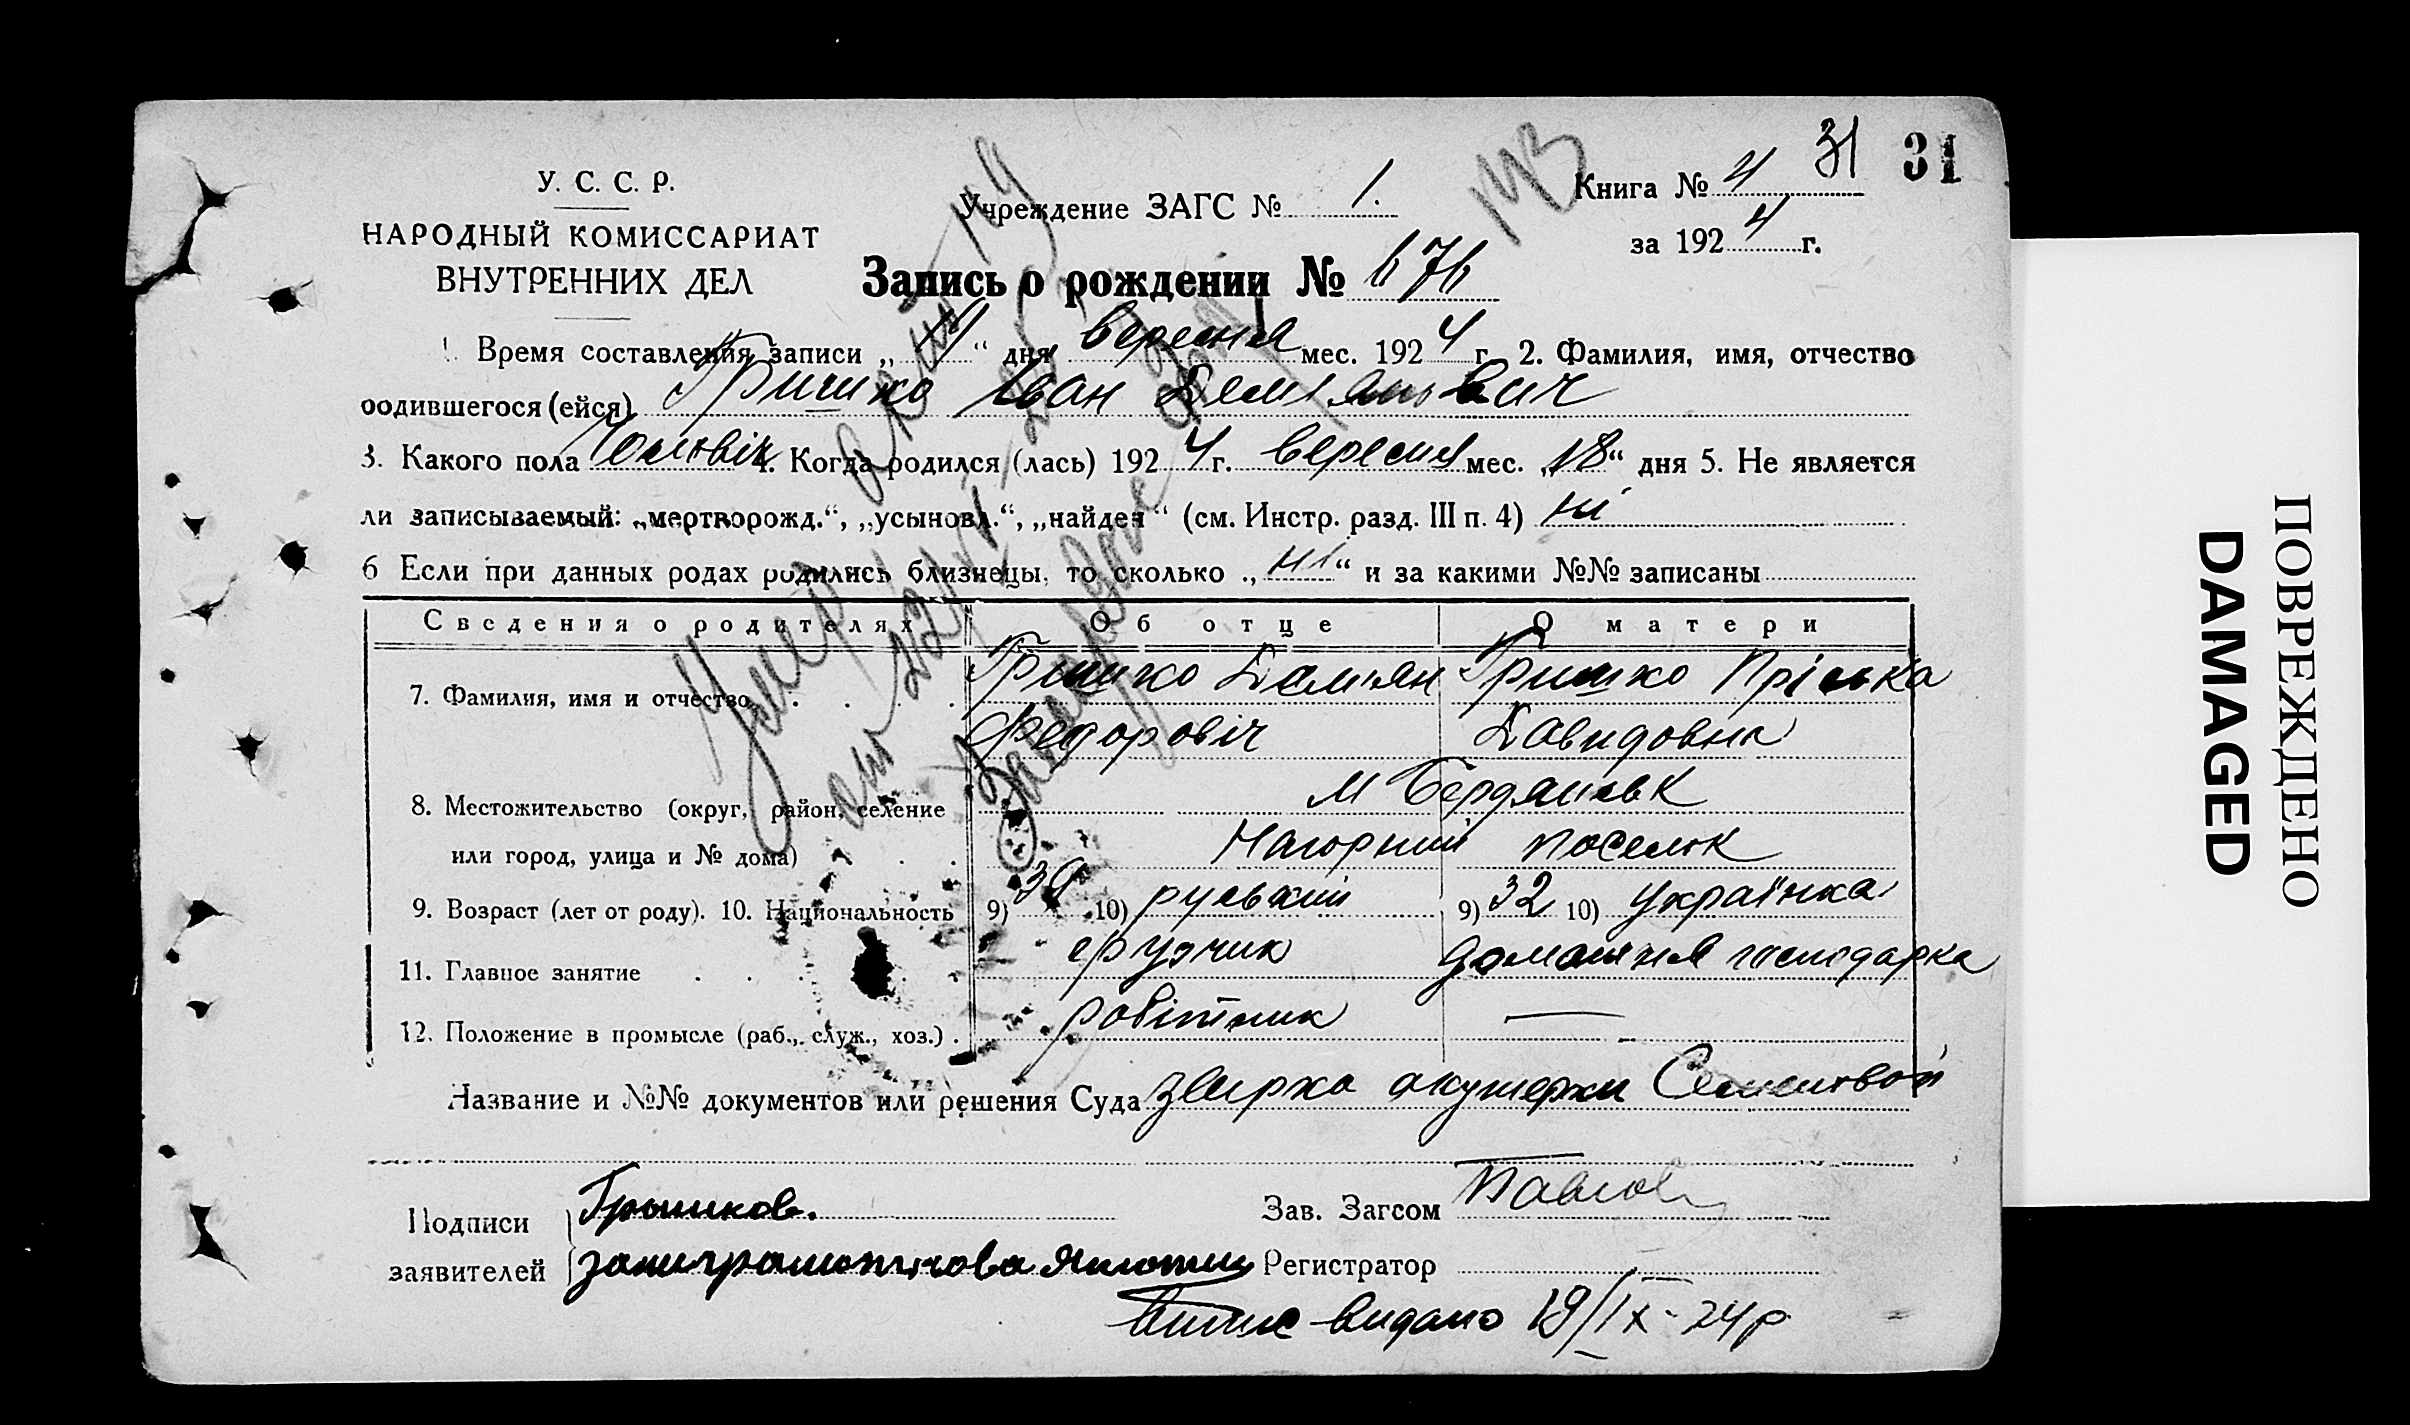 31 31
У. С. С. Р.
НАРОДНЫЙ КОМИССАРИАТ
ВНУТРЕННИХ ДЕЛ
Учреждение ЗАГС № 1.
Книга № 4
за 1924 г.
Запись о рождении № 676
Время составления записи „19“ дня вересня мес. 1924 г. 2. Фамилия, имя, отчество
родившегося (ейся) Гришко Іван Демʼянович
3. Какого пола Чоловіч 4. Когда родился (лась) 1924 г. вересня мес. „18“ дня 5. Не является
ли записываемый: „мертворожд.“, „усыновл.“, „найден“ (см. Инстр. разд. III п. 4) ні
6 Если при данных родах родились близнецы, то сколько „ні“ и за какими №№ записаны
Сведения о родителях Об отце О матери
7. Фамилия, имя и отчество Гришко Демʼян Гришко Пріська
Федоровіч Давидовна
8. Местожительство (округ, район, селение м Бердянськ
или город, улица и № дома) Нагорний поселок
9. Возраст (лет от роду). 10. Национальность 9) 39 10) руський 9) 32 10) українка
11. Главное занятие грузчик домашня господарка
12. Положение в промысле (раб., служ., хоз.) робітник —
Название и №№ документов или решения Суда акушерки
Подписи Грышков. Зав. Загсом Павлов
заявителей Регистратор
Витис видано 19/IX-24р
Умер
ПОВРЕЖДЕНО
DAMAGED